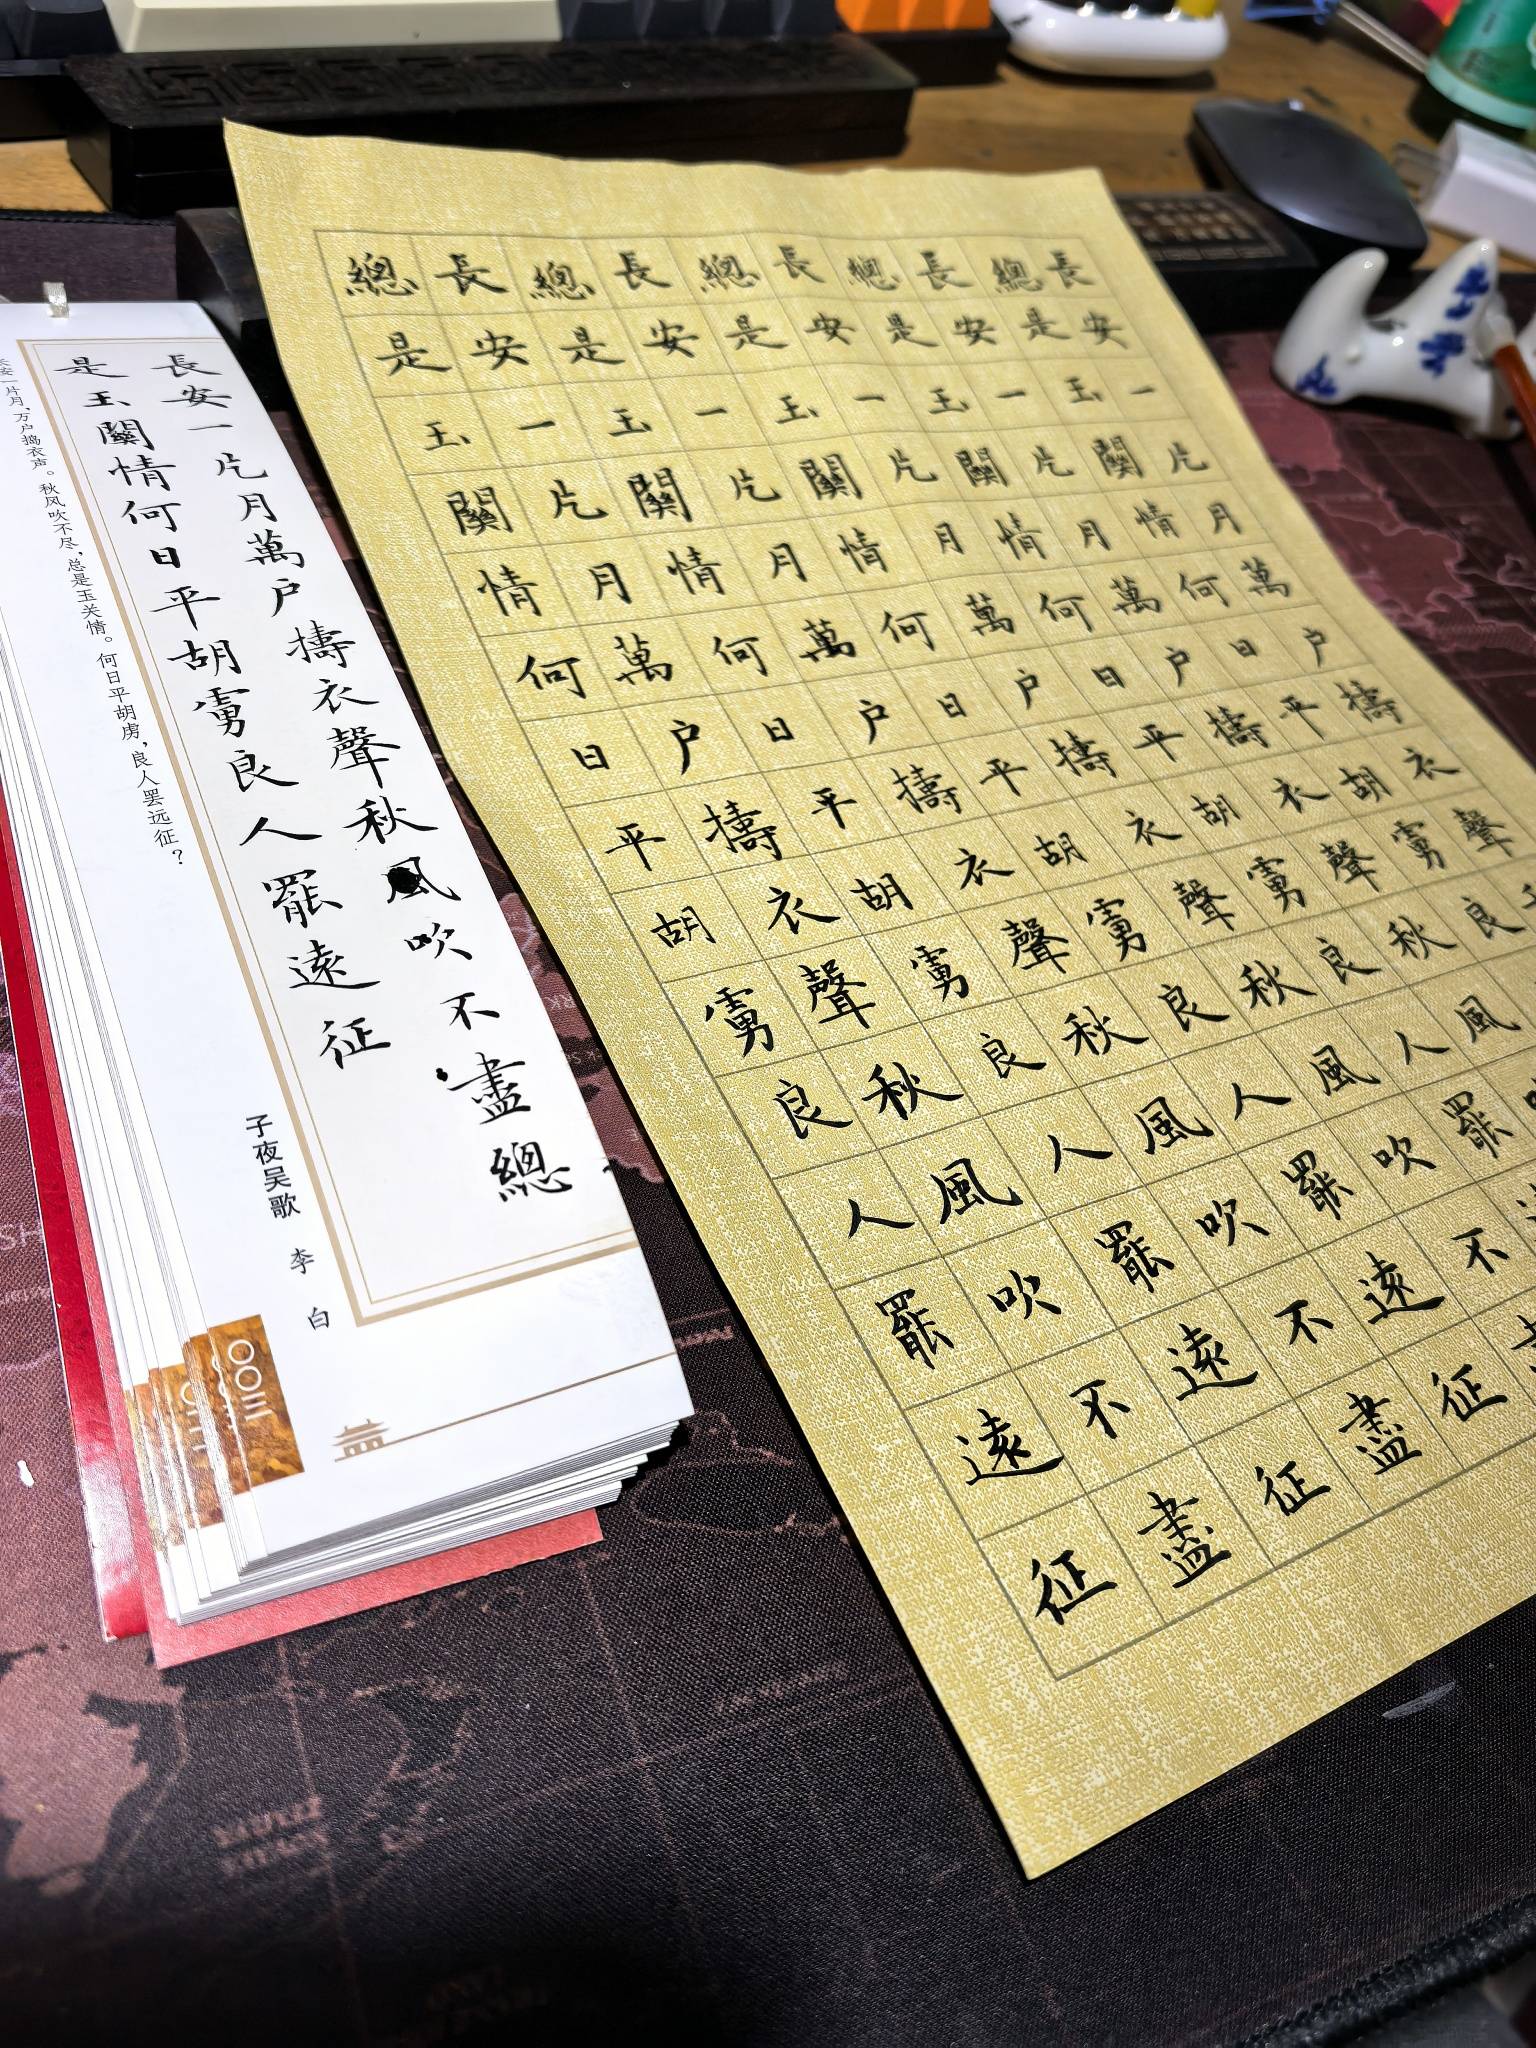 長安一片月萬户擣衣聲秋風吹不盡總
是玉關情何日平胡虜良人罷遠征
长安一片月，万户捣衣声。秋风吹不尽，总是玉关情。何日平胡虏，良人罢远征？
子夜吴歌 李白
〇〇三
長安一片月萬户擣衣聲
總是玉關情何日平胡虜良
長安一片月萬户擣衣聲秋風
總是玉關情何日平胡虜良人罷
長安一片月萬户擣衣聲秋風吹不
總是玉關情何日平胡虜良人罷遠征
長安一片月萬户擣衣聲秋風吹不盡
總是玉關情何日平胡虜良人罷遠征
長安一片月萬户擣衣聲秋風吹不盡
總是玉關情何日平胡虜良人罷遠征